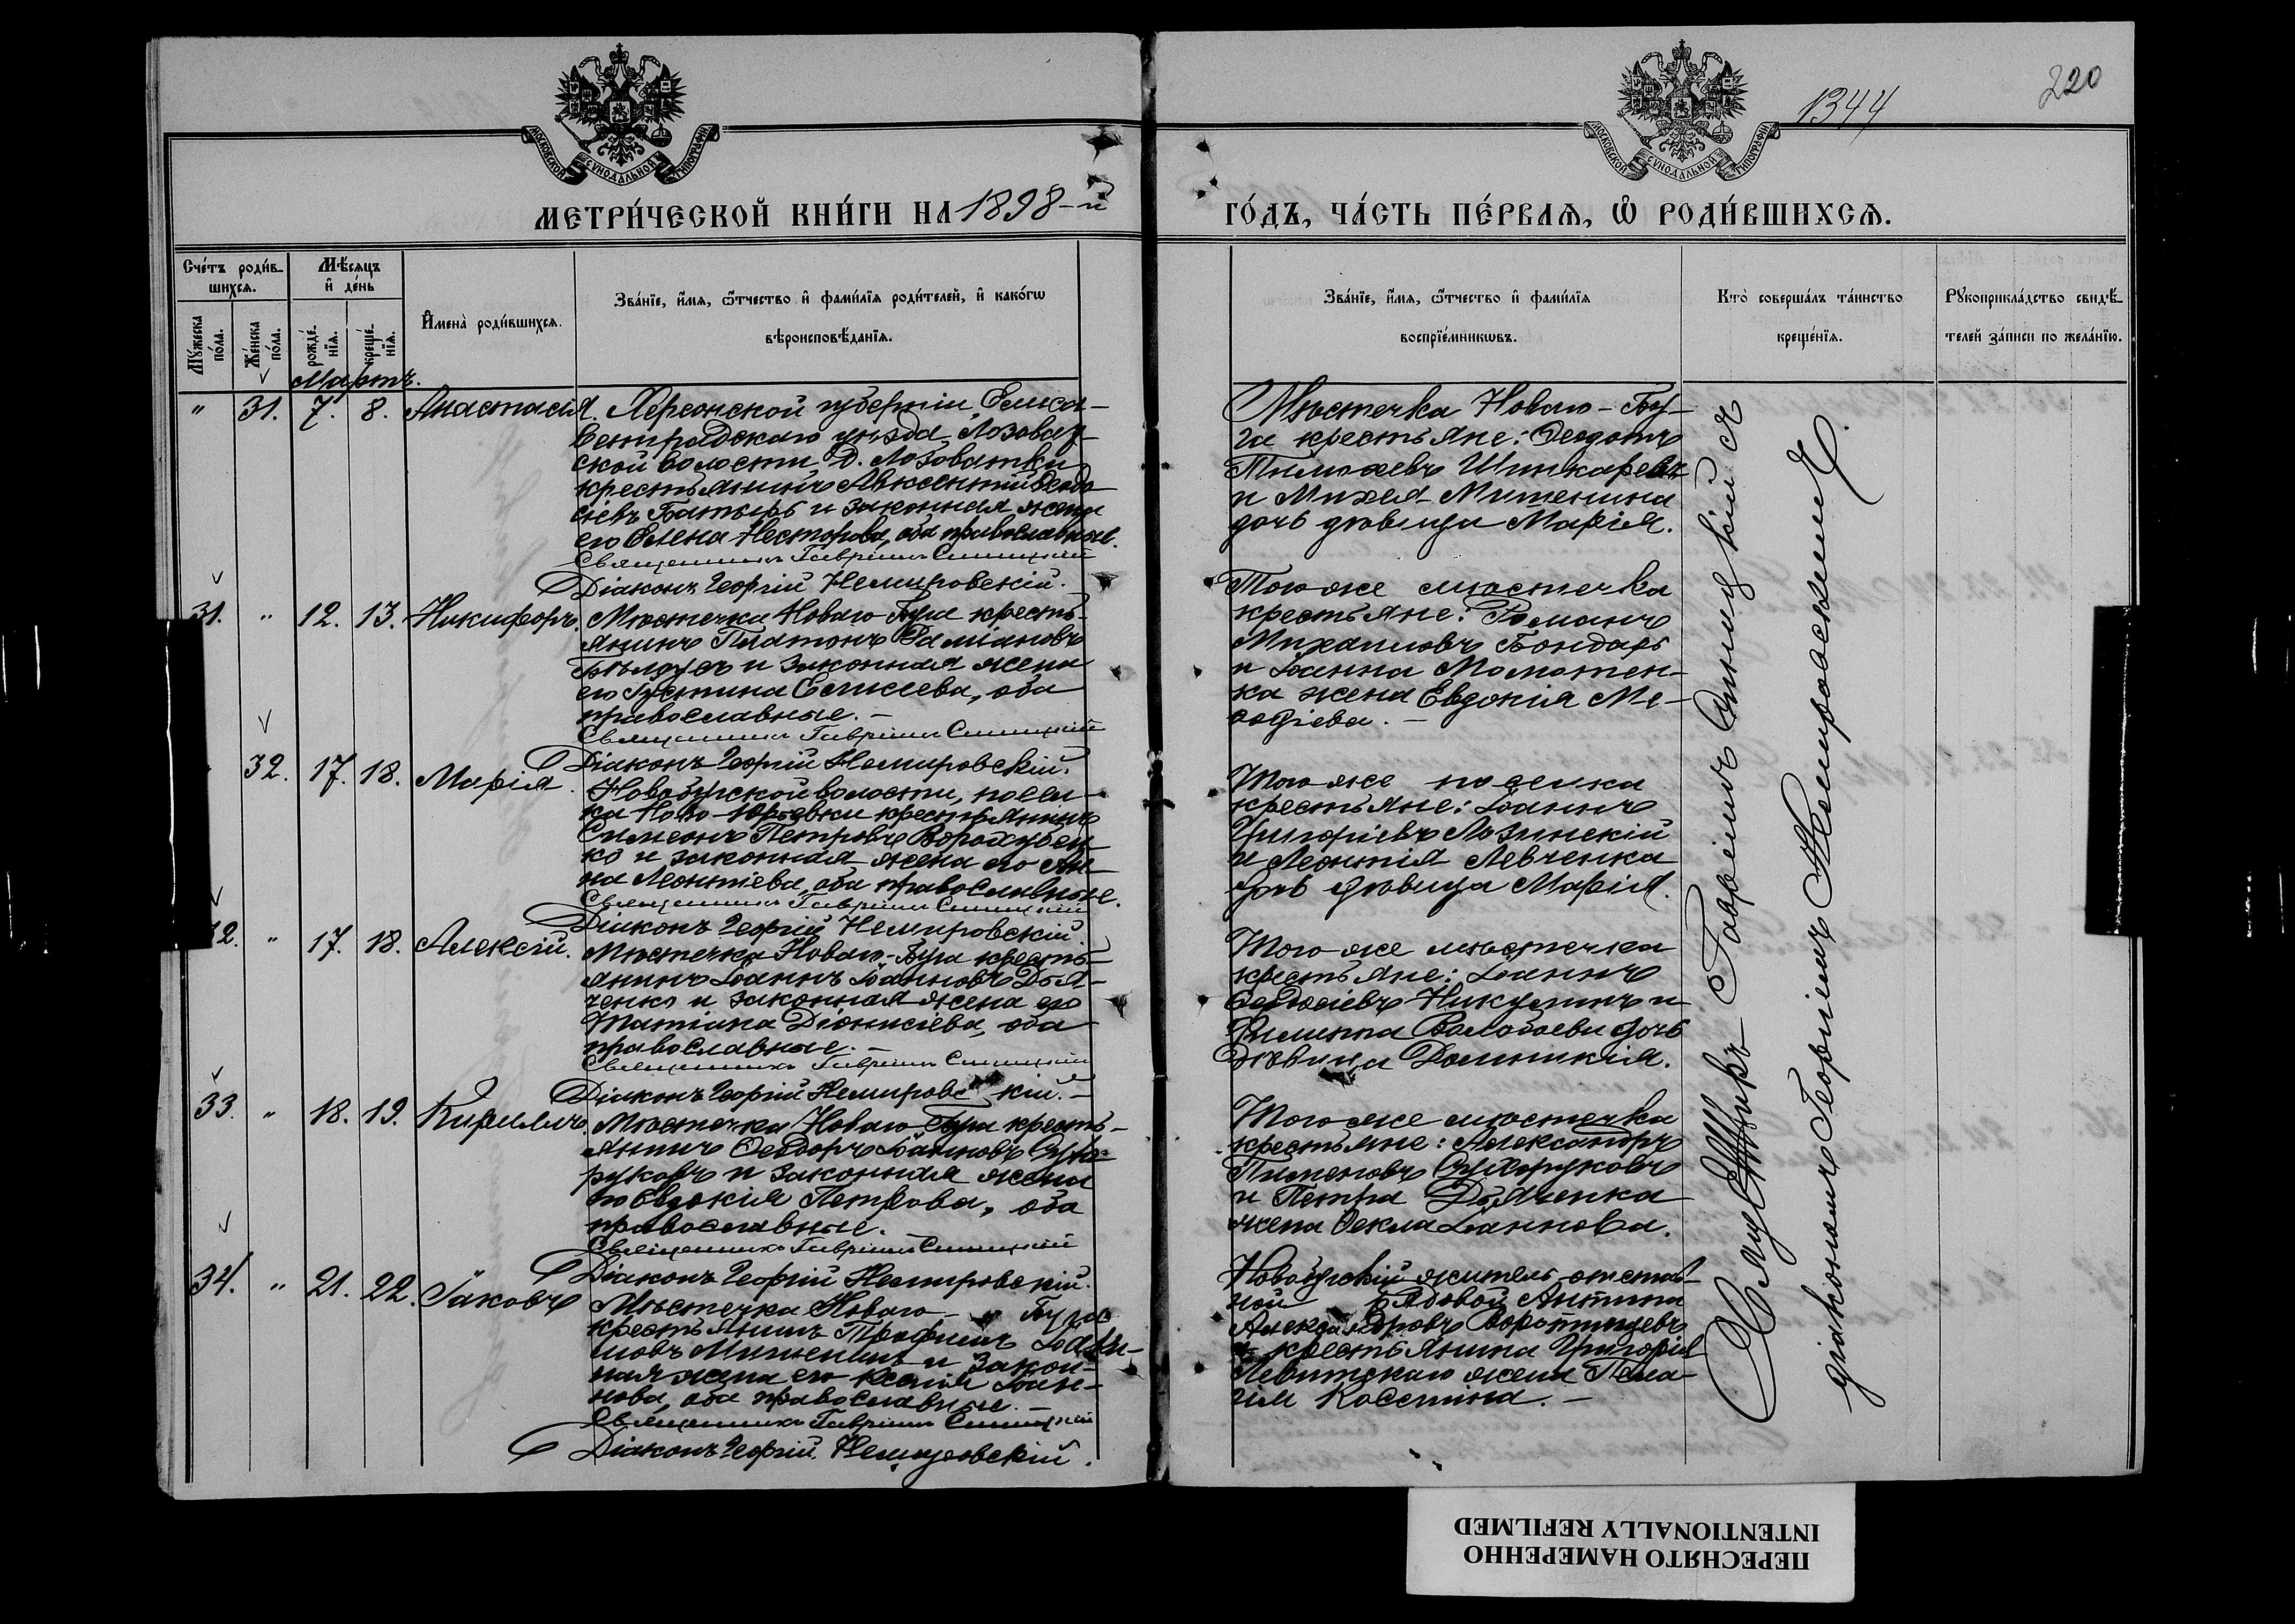 1344
220
МОСКОВСКОЙ СУНОДАЛЬНОЙ ТИПОГРАФІИ
МОСКОВСКОЙ СУНОДАЛЬНОЙ ТИПОГРАФІИ
МЕТРИ́ЧЕСКОЙ КНИ́ГИ НА 1898-й
ГО́ДЪ, ЧА́СТЬ ПЕ́РВАѦ, Ѡ҆ РОДИ́ВШИХСѦ.
Сче́тъ роди́в-
шихсѧ.
Мѣ́сѧцъ
и҆ де́нь
Мꙋ́жеска
по́ла.
Же́нска
по́ла.
рожде́-
нїѧ.
креще́-
нїѧ.
И҆мена̀ роди́вшихсѧ.
Зва́нїе, и҆́мѧ, ѻ҆́тчество и҆ фами́лїѧ роди́телей, и҆ како́гѡ
вѣроисповѣ́данїѧ.
Зва́нїе, и҆́мѧ, ѻ҆́тчество и҆ фами́лїѧ
воспрїе́мникѡвъ.
Кто̀ соверша́лъ та́инство
креще́нїѧ.
Рꙋкоприкла́дство свидѣ́-
телей за́писи по жела́нїю.
Мартъ.
" 31. 7. 8. Анастасія.
Херсонской губерніи, Елиса-
ветградскаго уѣзда Лозоват-
ской волости, д. Лозоватки
крестьянинъ Авксентій Ѳеодо
сіевъ Батырь и законная жена
его Елена Несторова, оба православные.
Священникъ Гавріилъ Синицкій
Діаконъ Георгій Немировскій.
Мѣстечка Новаго-Бу-
га крестьяне: Ѳеодотъ
Тимоѳеевъ Шинкаревъ
и Михея Митенина
дочь дѣвица Марія.
31. " 12. 13. Никифоръ.
Мѣстечка Новаго Буга кресть-
янинъ Платонъ
и законная жена
его Іустина Елисеева, оба
православные.-
Священникъ Гавріилъ Синицкій
Діаконъ Георгій Немировскій.
Того же мѣстечка
крестьяне: Романъ
Михаиловъ Бондарь
и Іоанна Момотен-
ка жена Евдокія Ме-
ѳодіева.-
32. 17. 18. Марія.
Новобугской волости, посел-
ка Ново-Юрьевки крестьянинъ
Симеонъ Петровъ
ко и законная жена его Ан-
на Леонтіева, оба православные.
Священникъ Гавріилъ Синицкій
Діаконъ Георгій Немировскій
Того же поселка
крестьяне: Іоаннъ
Григоріевъ Лозинскій
и Леонтія Левченка
дочь дѣвица Марія.
32. " 17. 18. Алексій.
Мѣстечка Новаго-Буга кресть-
янинъ Іоаннъ Іоанновъ Дья-
ченко и законная жена его
Татіана Діонисіева, оба
православные.-
Священникъ Гавріилъ Синицкій
Діаконъ Георгій Немировскій.-
Того же мѣстечка
крестьяне: Іоаннъ
Никулинъ и
Филиппа дочь
дѣвица Домникія.
33. " 18. 19. Кириллъ.
Мѣстечка Новаго Буга кресть-
янинъ Ѳеодоръ Іоанновъ Сухо-
руковъ и законная жена
его Евдокія Петрова, оба
православные.
Священникъ Гавріилъ Синицкій
Діаконъ Георгій Немировскій.
Того же мѣстечка
крестьяне: Александръ
Пименовъ Сухоруковъ
и Петра Дьяченка
жена Ѳекла Іоаннова.
34. " 21. 22. Іаковъ
Мѣстечка Новаго - Буга
крестьянинъ Трофимъ Іоакі-
мовъ и закон-
ная жена его Ксенія Іоан-
нова, оба православные.-
Священникъ Гавріилъ Синицкій
Діаконъ Георгій Немировскій.
Новобугскій житель отстав-
ной рядовой Антипа
Александровъ Воротынцевъ
и крестьянина Григорія
Левитскаго жена Пела-
гія Косьмина.-
Священникъ Гавріилъ Синицкій съ
діакономъ Георгіемъ Немировскимъ.
ПЕРЕСНЯТО НАМЕРЕННО
INTENTIONALLY REFILMED